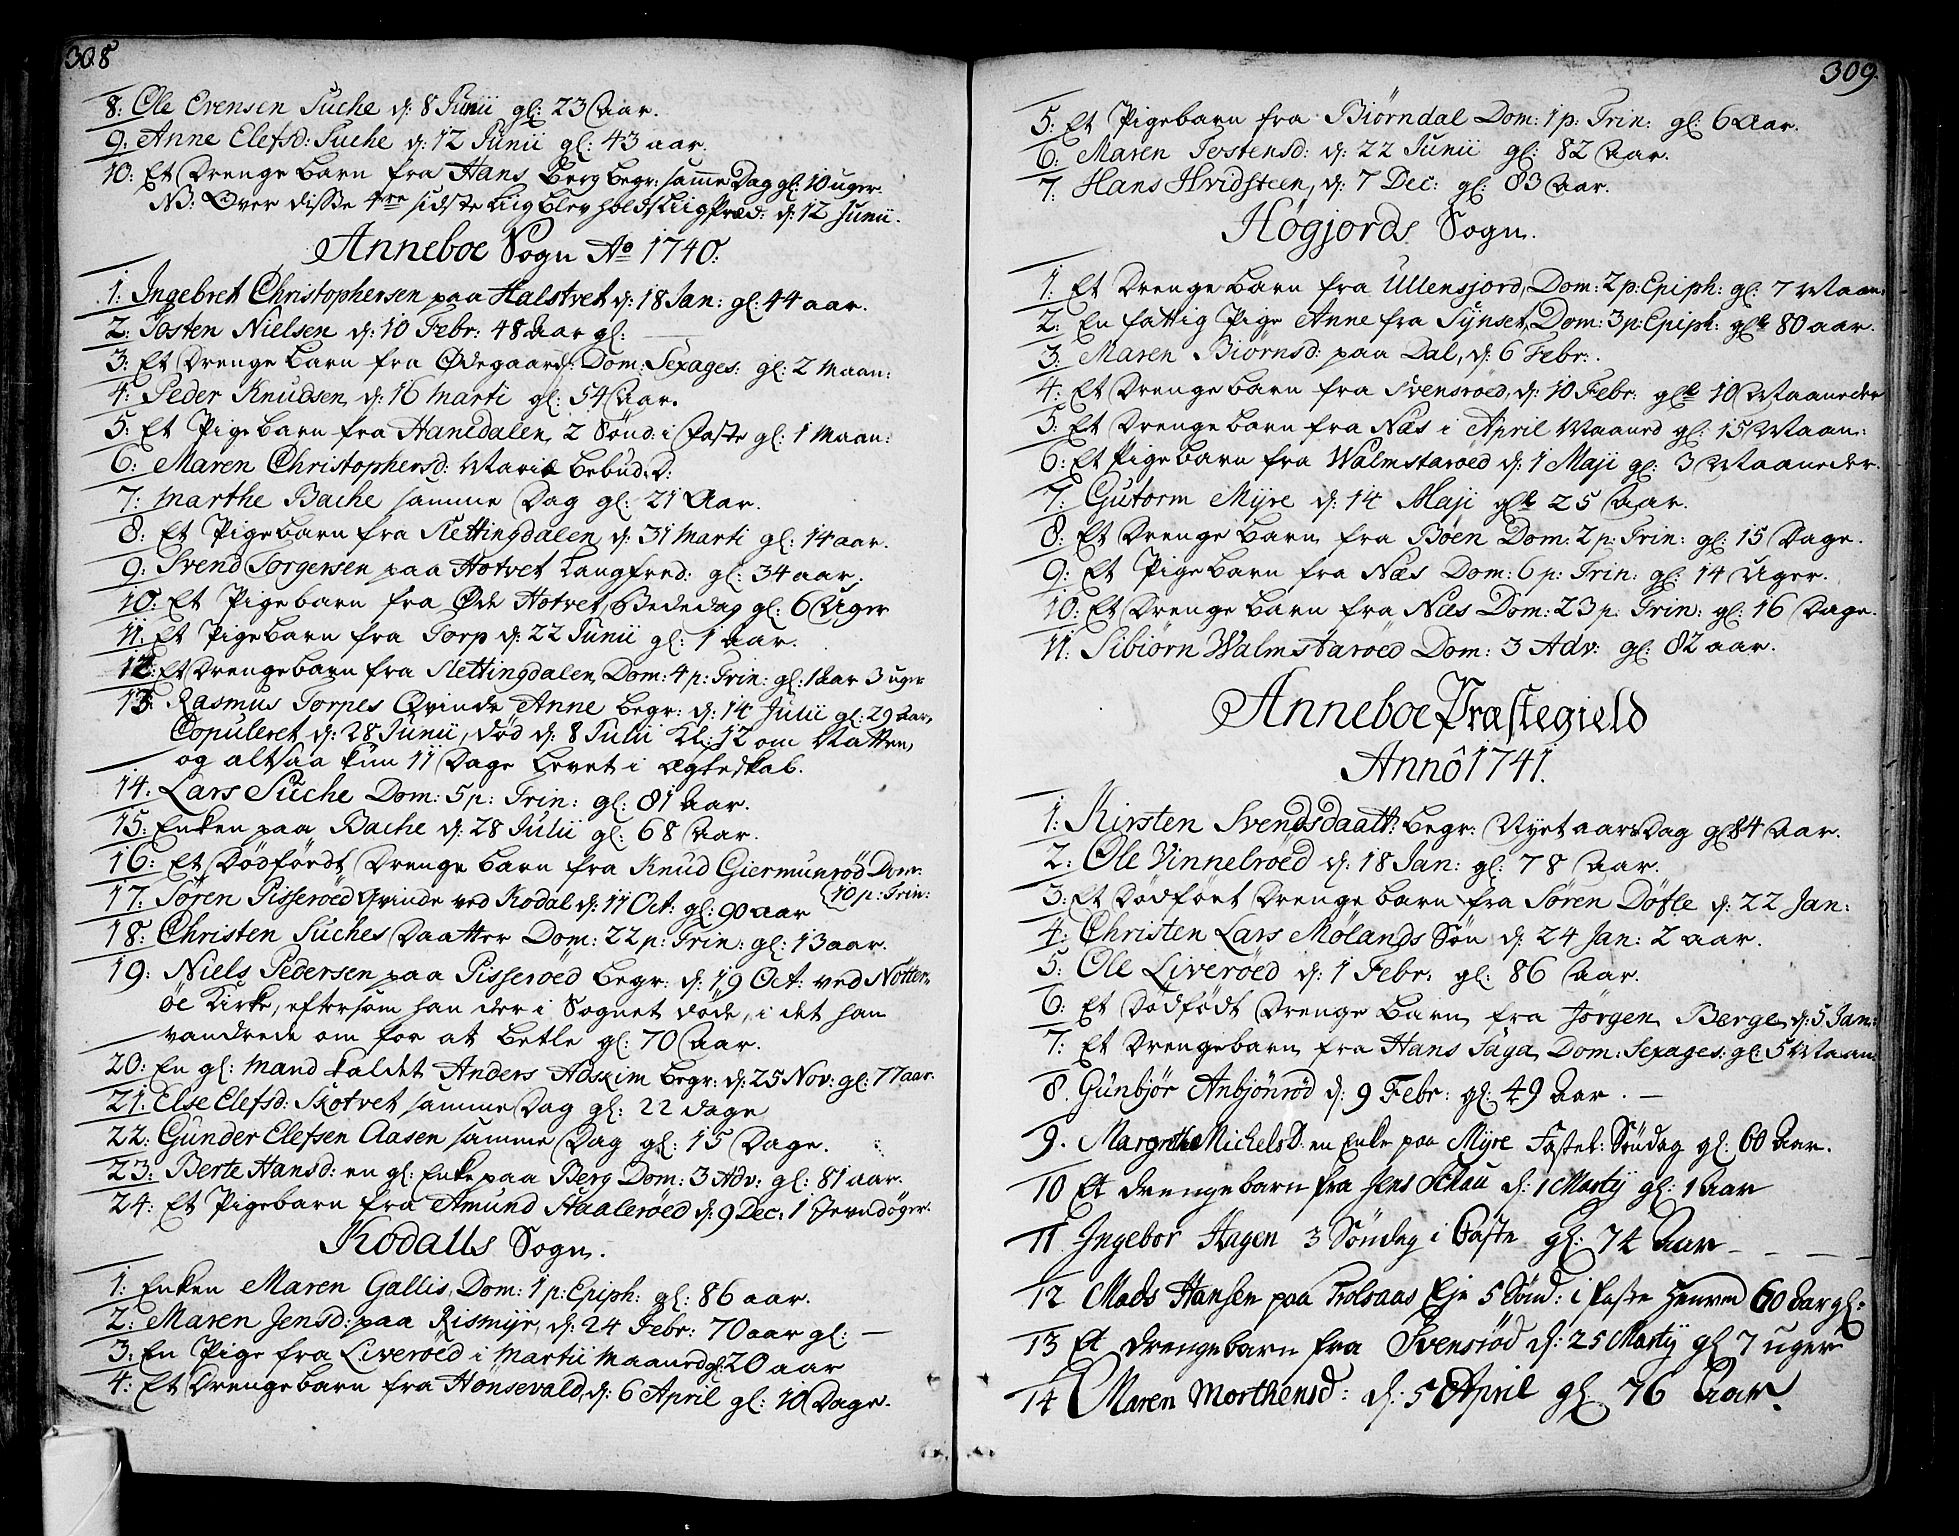 308
8: Ole Evensen Suche d: 8 Junii gl: 23 Aar.
9: Anne Elefsd: Suche d: 12 Junii gl: 43 aar.
10: Et Drenge barn fra Hans Berg begr: samme Dag gl: 10 uger.
NB: Over disse 4re sidste Liig blev holdt Liig Præd: d: 12 Junii.
Anneboe Sogn Ao 1740.
1: Ingebret Christophersen paa Halstvet d: 18 Jan: gl: 44 aar.
2: Tosten Nielsen d: 10 Febr: 48 Aar gl:
3: Et Drenge barn fra Ødegaard: Dom: Sexages: gl: 2 Maan:
4: Peder Knudsen d: 16 Marti gl: 54 Aar.
5: Et Pige barn fra Hanedalen 2 Sønd: i Faste gl: 1 Maan:
6: Maren Christophersd: Mariæ bebud: D:
7: Marthe Bache samme Dag gl: 21 Aar.
8: Et Pigebarn fra Slettingdalen d: 31 Marti gl: 14 aar.
9: Svend Torgersen paa Hotvet Langfred: gl: 34 aar.
10: Et Pigebarn fra Øde Hotvet, Bededag gl: 6 Uger
11: Et Pigebarn fra Torp d: 22 Junii gl: 1 aar.
12: Et Drengebarn fra Slettingdalen, Dom: 4 p: Trin: gl: 1 Aar 3 uger
13: Rasmus Torpes Qvinde Anne begr: d: 14 Julii gl: 29 Aar,
Copuleret d: 28 Junii, død d: 8 Julii Kl: 12 om Natten,
og altsaa kun 11 Dage levet i Ægteskab.
14. Lars Suche Dom: 5 p: Trin: gl: 81 Aar.
15: Enken paa Bache d: 28 Julii gl: 68 Aar.
16: Et Dødfødt Drenge barn fra Knud Giermunrød Dom:
10 p: Trin:
17. Søren Pisserøed Qvinde ved Kodal d: 11 Oct: gl: 90 Aar
18: Christen Suches Daatter Dom: 22 p: Trin: gl: 13 aar.
19: Niels Pedersen paa Pisserøed begr: d: 19 Oct: ved Nøtter-
øe Kirke, eftersom han der i Sognet døde, i det han
vandrede om for at betle gl: 70 Aar.
20: En gl: Mand kaldet Anders Askim begr: d: 25 Nov: gl: 77 aar.
21. Else Elefsd: Skotvet samme Dag gl: 22 dage
22: Gunder Elefsen Aasen samme Dag gl: 15 Dage.
23: Berte Hansd: en gl: Enke paa Berg Dom: 3 Adv: gl: 81 aar.
24: Et Pigebarn fra Amund Haalerøed d: 9 Dec: 1 Jevndøger.
Kodalls Sogn.
1: Enken Maren Gallis, Dom: 1 p: Epiph: gl: 86 aar.
2: Maren Jensd: paa Rismyr, d: 24 Febr: 70 aar gl:
3: En Pige fra Liverøed i Martii Maaned gl: 20 aar
4: Et Drengebarn fra Hønsevald, d: 6 April gl: 10 Dage.
309
5: Et Pigebarn fra Biørndal Dom: 1 p: Trin: gl: 6 Aar.
6: Maren Tostensd: d: 22 Junii gl: 82 Aar.
7: Hans Hvidsteen, d: 7 Dec: gl: 83 Aar.
Høgjords Sogn.
1: Et Drenge barn fra Ullensjord, Dom: 2 p: Epiph: gl: 7 Maan:
2: En fattig Pige Anne fra Synset, Dom: 3 p: Epiph: gl: 80 aar.
3: Maren Biørnsd: paa Dal, d: 6 Febr:
4: Et Drenge barn fra Svensrøed, d: 10 Febr: gl: 10 Maaneder
5: Et Drenge barn fra Næs i April Maaned gl: 15 Maan:
6: Et Pigebarn fra Walmstarøed d: 1 Maji gl: 3 Maaneder.
7: Gutorm Myre d: 14 Maji gl: 25 Aar.
8: Et Drenge barn fra Bøen Dom: 2 p: Trin: gl: 15 Dage.
9: Et Pigebarn fra Næs Dom: 6 p: Trin: gl: 14 Uger.
10: Et Drenge barn fra Næs Dom: 23 p: Trin: gl: 16 Dage.
11: Sibiørn Walmstarøed Dom: 3 Adv: gl: 82 aar.
Anneboe Præstegield
Annô 1741.
1: Kirsten Svendsdaatt: begr: Nyetaars Dag gl 84 Aar.
2: Ole Vinnelrøed d: 18 Jan: gl: 78 Aar.
3: Et Dødføet Drenge barn fra Søren Døfle d: 22 Jan:
4: Christen Lars Mølands Søn d: 24 Jan: 2 aar.
5: Ole Liverøed d: 1 Febr: gl: 86 Aar.
6: Et Dødfødt Drenge barn fra Jørgen Berge d: 5 Jan:
7: Et Drengebarn fra Hans Saga, Dom: Sexages: gl: 5 Maan:
8. Gunbjør Anbjønrød d: 9 Febr: gl: 49 Aar.
9. Margrethe Michelsd: en Enke paa Myre Fastel: Søndag gl: 60 Aar.
10 Et drengebarn fra Jens Skau d: 1 Martij gl: 1 Aar
11 Ingebor Hagen 3 Søndag i Faste gl: 74 Aar
12 Mads Hansen paa Trolsaas Eje 5 Sønd: i Faste henved 60 Aar gl:
13 Et drengebarn fra Svensrød d: 25 Martij gl 7 uger
14 Maren Morthensd: d: 5 April gl. 76 Aar.